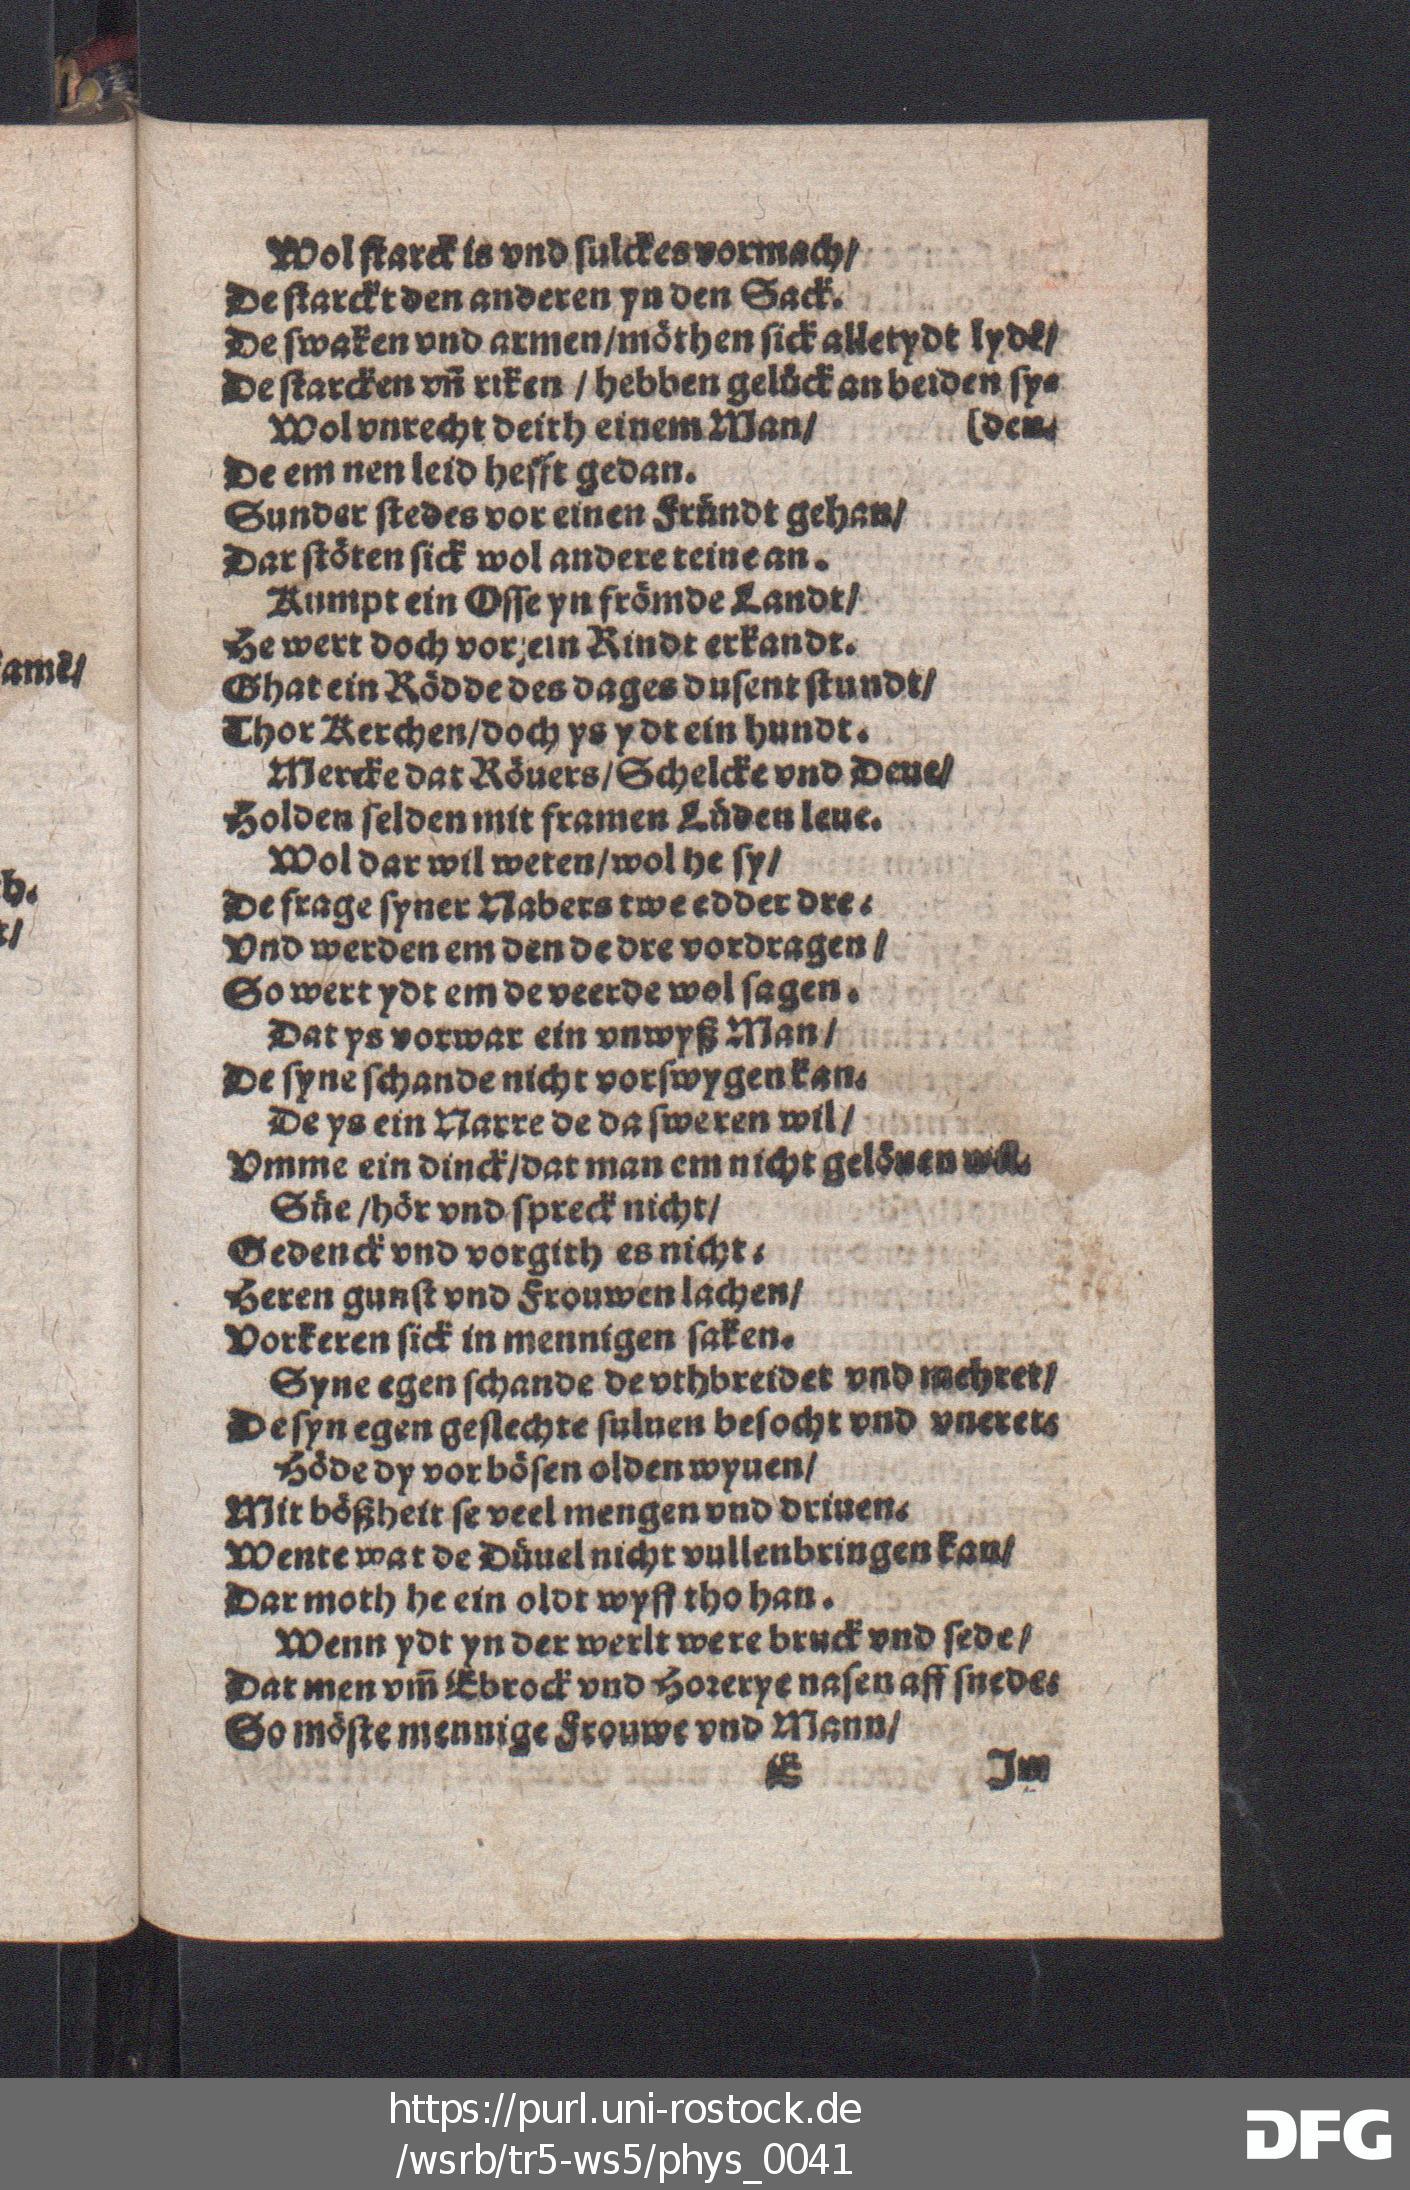 Wol starck is vnd sulckes vormach/
De starckt den anderen yn den Sack.
De swaken vnd armen/möthen sick alletydt lydē/
De starcken vn̄ riken / hebben gelück an beiden sy-
Wol vnrecht deith einem Man/ (den.
De em nen leid hefft gedan.
Sunder stedes vor einen Fründt gehan/
Dar stöten sick wol andere teine an.
Kumpt ein Osse yn frömde Landt/
He wert doch vor ein Rindt erkandt.
Ghat ein Rödde des dages dusent stundt/
Thor Kerchen/doch ys ydt ein hundt.
Mercke dat Röuers/Schelcke vnd Deue/
Holden selden mit framen Lüden leue.
Wol dar wil weten/wol he sy/
De frage syner Nabers twe edder dre.
Vnd werden em den de dre vordragen/
So wert ydt em de veerde wol sagen.
Dat ys vorwar ein vnwyß Man/
De syne schande nicht vorswygen kan.
De ys ein Narre de da sweren wil/
Vmme ein dinck/dat man em nicht gelöuen wil.
Süe /hör vnd spreck nicht/
Gedenck vnd vorgith es nicht.
Heren gunst vnd Frouwen lachen/
Vorkeren sick in mennigen saken.
Syne egen schande de vthbreidet vnd mehret/
De syn egen geslechte suluen besocht vnd vneret.
Höde dy vor bösen olden wyuen/
Mit bößheit se veel mengen vnd driuen.
Wente wat de Düuel nicht vullenbringen kan/
Dar moth he ein oldt wyff tho han.
Wenn ydt yn der werlt were bruck vnd sede/
Dat men vm̄ Ebrock vnd Horerye nasen aff snede.
So möste mennige Frouwe vnd Mann/
E Im
amē/
h.
t/
https://purl.uni-rostock.de
/wsrb/tr5-ws5/phys_0041
DFG